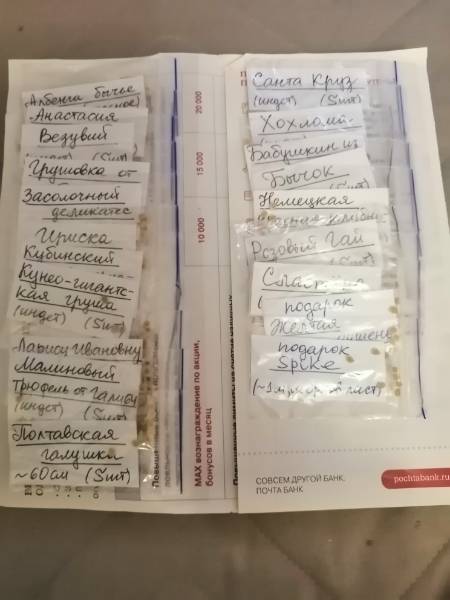 Альбенга бычье
Анастасия
Везувий
(5шт)
Грушовка от
Засолочный
деликатес
Ириска
Кубинский
Кунео-гигантс-
кая груша
(индет) (5шт)
Ларису Ивановну
Малиновый
Трюфель от Галины
(индет) (5шт)
Полтавская
галушка
~60см (5шт)
20 000
15 000
10 000
MAX вознаграждение по акции,
бонусов в месяц
Санта Круз
(индет) (5шт)
Хохлома
Бабушкин из
Бычок
Немецкая
Розовый Гай
подарок
Желтая
подарок
Spike
СОВСЕМ ДРУГОЙ БАНК.
ПОЧТА БАНК
pochtabank.ru